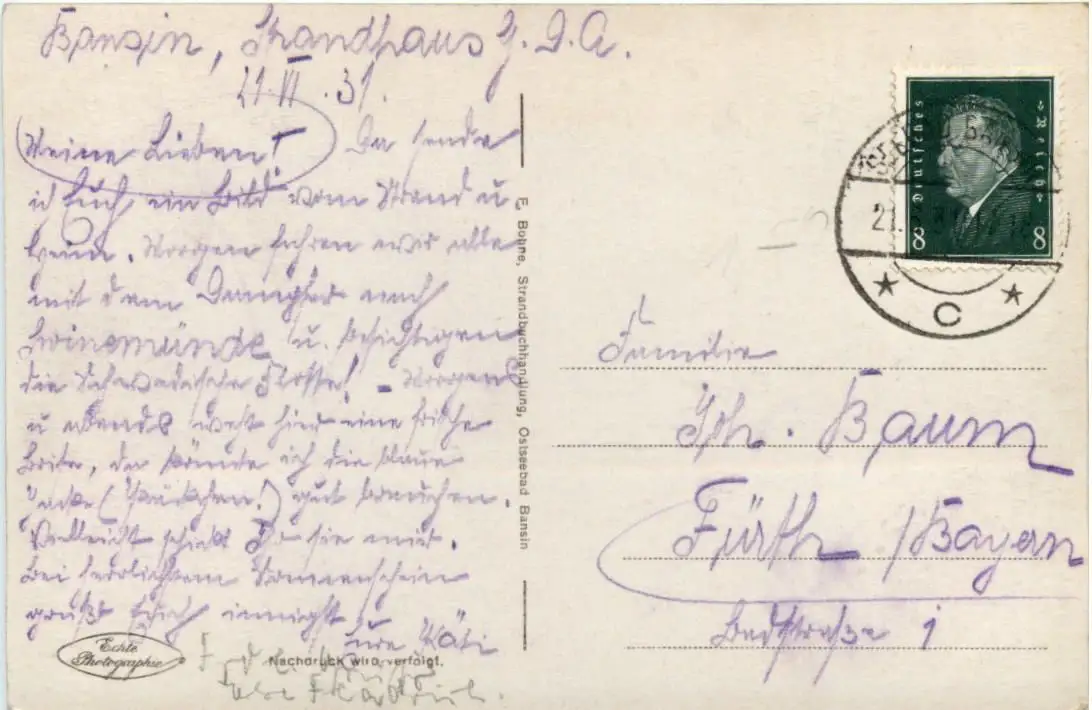 Bansin, Strandhaus
21.VI.31.
Meine Lieben! Da sende
ich Euch ein Bild vom Strand u
heim. Morgen fahren wir alle
mit dem Dampfer nach
Swinemünde u. besichtigen
die Schwedische Flotte! – Morgens
u abends weht hier eine frische
Brise, da könnte ich die blaue
Jacke gut brauchen.
Vielleicht schickt Du sie mir.
Bei herrlichstem Sonnenschein
grüßt Euch innigst
Eure Käti
E. Bohne, Strandbuchhandlung, Ostseebad Bansin
Echte
Photographie
Nachdruck wird verfolgt.
Deutsches Reich
8 8
C
Familie
Joh. Baum
Fürth /Bayern
Badstraße 1